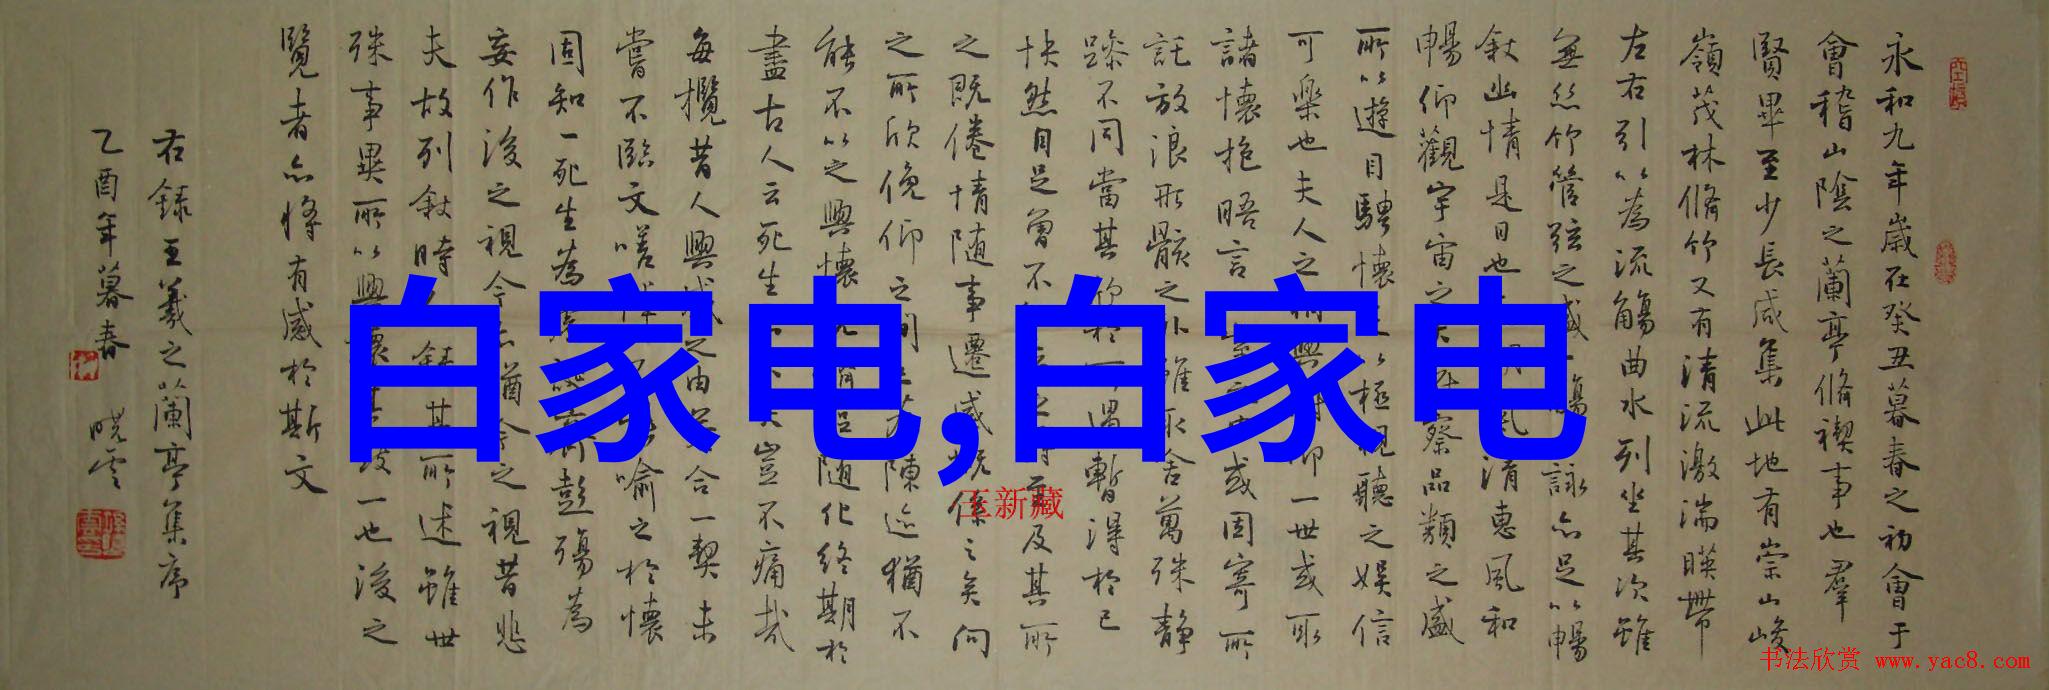 永和九年歲在癸丑暮春之初會于
會稽山陰之蘭亭脩禊事也羣
賢畢至少長咸集此地有崇山峻
嶺茂林脩竹又有清流激湍暎帶
左右引以為流觴曲水列坐其次雖
無絲竹管弦之盛一觴詠亦足以暢
敘幽情是日也風消惠風和
暢仰觀宇宙之大察品類之盛
所以遊目騁懷足以極視聽之娛信
可樂也夫人之相與俯仰一世或取
諸懷抱晤言室之內或因寄所
託放浪形骸之外雖取舍萬殊静
躁不同當其欣於所遇暫得於己
快然自足曾不知老之将至及其所
之既倦情随事遷感慨係之矣向
之所欣俛仰之間以為陳迹猶不
能不以之興懷况脩短随化終期於
盡古人云死生亦大矣豈不痛哉
每攬昔人興感之由若合一契未
嘗不臨文嗟悼不能喻之於懷
固知一死生為虛誕齊彭殤為
妄作後之視今亦猶今之視昔悲
夫故列敘時人錄其所述雖世
殊事異所以興懷其致一也後之
覽者亦将有感於斯文
右錄王羲之蘭亭集序
乙酉年暮春 曉雲
白家电,白家电
王新藏
书法欣赏 www.yac8.com